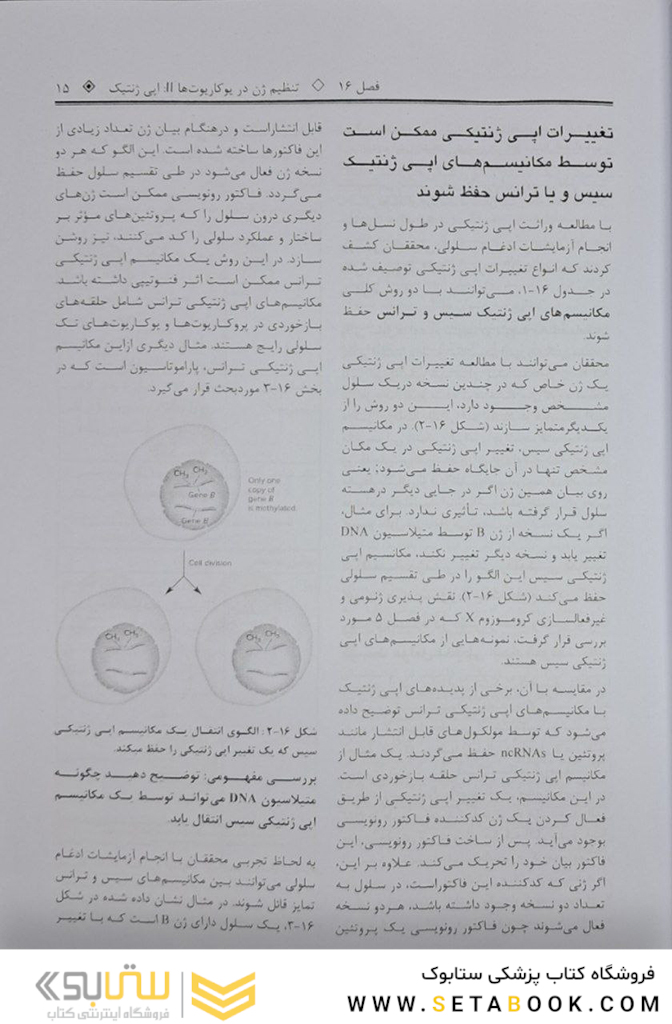 فصل ۱۶ ◇ تنظیم ژن در یوکاریوت‌ها II: اپی ژنتیک ◈ ۱۵
تغییرات اپی ژنتیکی ممکن است
توسط مکانیسم‌های اپی ژنتیک
سیس و یا ترانس حفظ شوند
با مطالعه وراثت اپی ژنتیکی در طول نسل‌ها و
انجام آزمایشات ادغام سلولی، محققان کشف
کردند که انواع تغییرات اپی ژنتیکی توصیف شده
در جدول ۱۶-۱، می‌توانند با دو روش کلی
مکانیسم‌های اپی ژنتیک سیس و ترانس حفظ
شوند.
محققان می‌توانند با مطالعه تغییرات اپی ژنتیکی
یک ژن خاص که در چندین نسخه دریک سلول
مشخص وجود دارد، این دو روش را از
یکدیگرمتمایز سازند (شکل ۱۶-۲). در مکانیسم
اپی ژنتیکی سیس، تغییر اپی ژنتیکی در یک مکان
مشخص تنها در آن جایگاه حفظ می‌شود؛ یعنی
روی بیان همین ژن اگر در جایی دیگر درهسته
سلول قرار گرفته باشد، تأثیری ندارد. برای مثال،
اگر یک نسخه از ژن B توسط متیلاسیون DNA
تغییر یابد و نسخه دیگر تغییر نکند، مکانسیم اپی
ژنتیکی سیس این الگو را در طی تقسیم سلولی
حفظ می‌کند (شکل ۱۶-۲). نقش پذیری ژنومی و
غیرفعالسازی کروموزوم X که در فصل ۵ مورد
بررسی قرار گرفت، نمونه‌هایی از مکانیسم‌های اپی
ژنتیکی سیس هستند.
در مقایسه با آن، برخی از پدیده‌های اپی ژنتیک
با مکانیسم‌های اپی ژنتیکی ترانس توضیح داده
می‌شود که توسط مولکول‌های قابل انتشار مانند
پروتئین یا ncRNAs حفظ می‌گردند. یک مثال از
مکانیسم اپی ژنتیکی ترانس حلقه بازخوردی است.
در این مکانیسم، یک تغییر اپی ژنتیکی از طریق
فعال کردن یک ژن کدکننده فاکتور رونویسی
بوجود می‌آید. پس از ساخت فاکتور رونویسی، این
فاکتور بیان خود را تحریک می‌کند. علاوه بر این،
اگر ژنی که کدکننده این فاکتوراست، در سلول به
تعداد دو نسخه وجود داشته باشد، هر دو نسخه
فعال می‌شوند چون فاکتور رونویسی یک پروتئین
قابل انتشاراست و درهنگام بیان ژن تعداد زیادی از
این فاکتورها ساخته شده است. این الگو که هر دو
نسخه ژن فعال می‌شود در طی تقسیم سلول حفظ
می‌گردد. فاکتور رونویسی ممکن است ژن‌های
دیگری درون سلول را که پروتئین‌های مؤثر بر
ساختار و عملکرد سلولی را کد می‌کنند، نیز روشن
سازد. در این روش یک مکانیسم اپی ژنتیکی
ترانس ممکن است اثر فنوتیپی داشته باشد.
مکانیم‌های اپی ژنتیکی ترانس شامل حلقه‌های
بازخوردی در پروکاریوت‌ها و یوکاریوت‌های تک
سلولی رایج هستند. مثال دیگری ازاین مکانیم
اپی ژنتیکی ترانس، پاراموتاسیون است که در
بخش ۱۶-۳ موردبحث قرار می‌گیرد.
CH₃ CH₃
Gene B
Gene B
Only one
copy of
gene B
is methylated.
Cell division
CH₃ CH₃
CH₃ CH₃
شکل ۱۶-۲: الگوی انتقال یک مکانیسم اپی ژنتیکی
سیس که یک تغییر اپی ژنتیکی را حفظ میکند.
بررسی مفهومی: توضیح دهید چگونه
متیلاسیون DNA می‌تواند توسط یک مکانیسم
اپی ژنتیکی سیس انتقال یابد.
به لحاظ تجربی محققان با انجام آزمایشات ادغام
سلولی می‌توانند بین مکانیسم‌های سیس و ترانس
تمایز قائل شوند. در مثال نشان داده شده در شکل
۱۶-۳، یک سلول دارای ژن B است که با تغییر
فروشگاه کتاب پزشکی ستابوک
WWW.SETABOOK.COM
ستابوک
فروشگاه اینترنتی کتاب